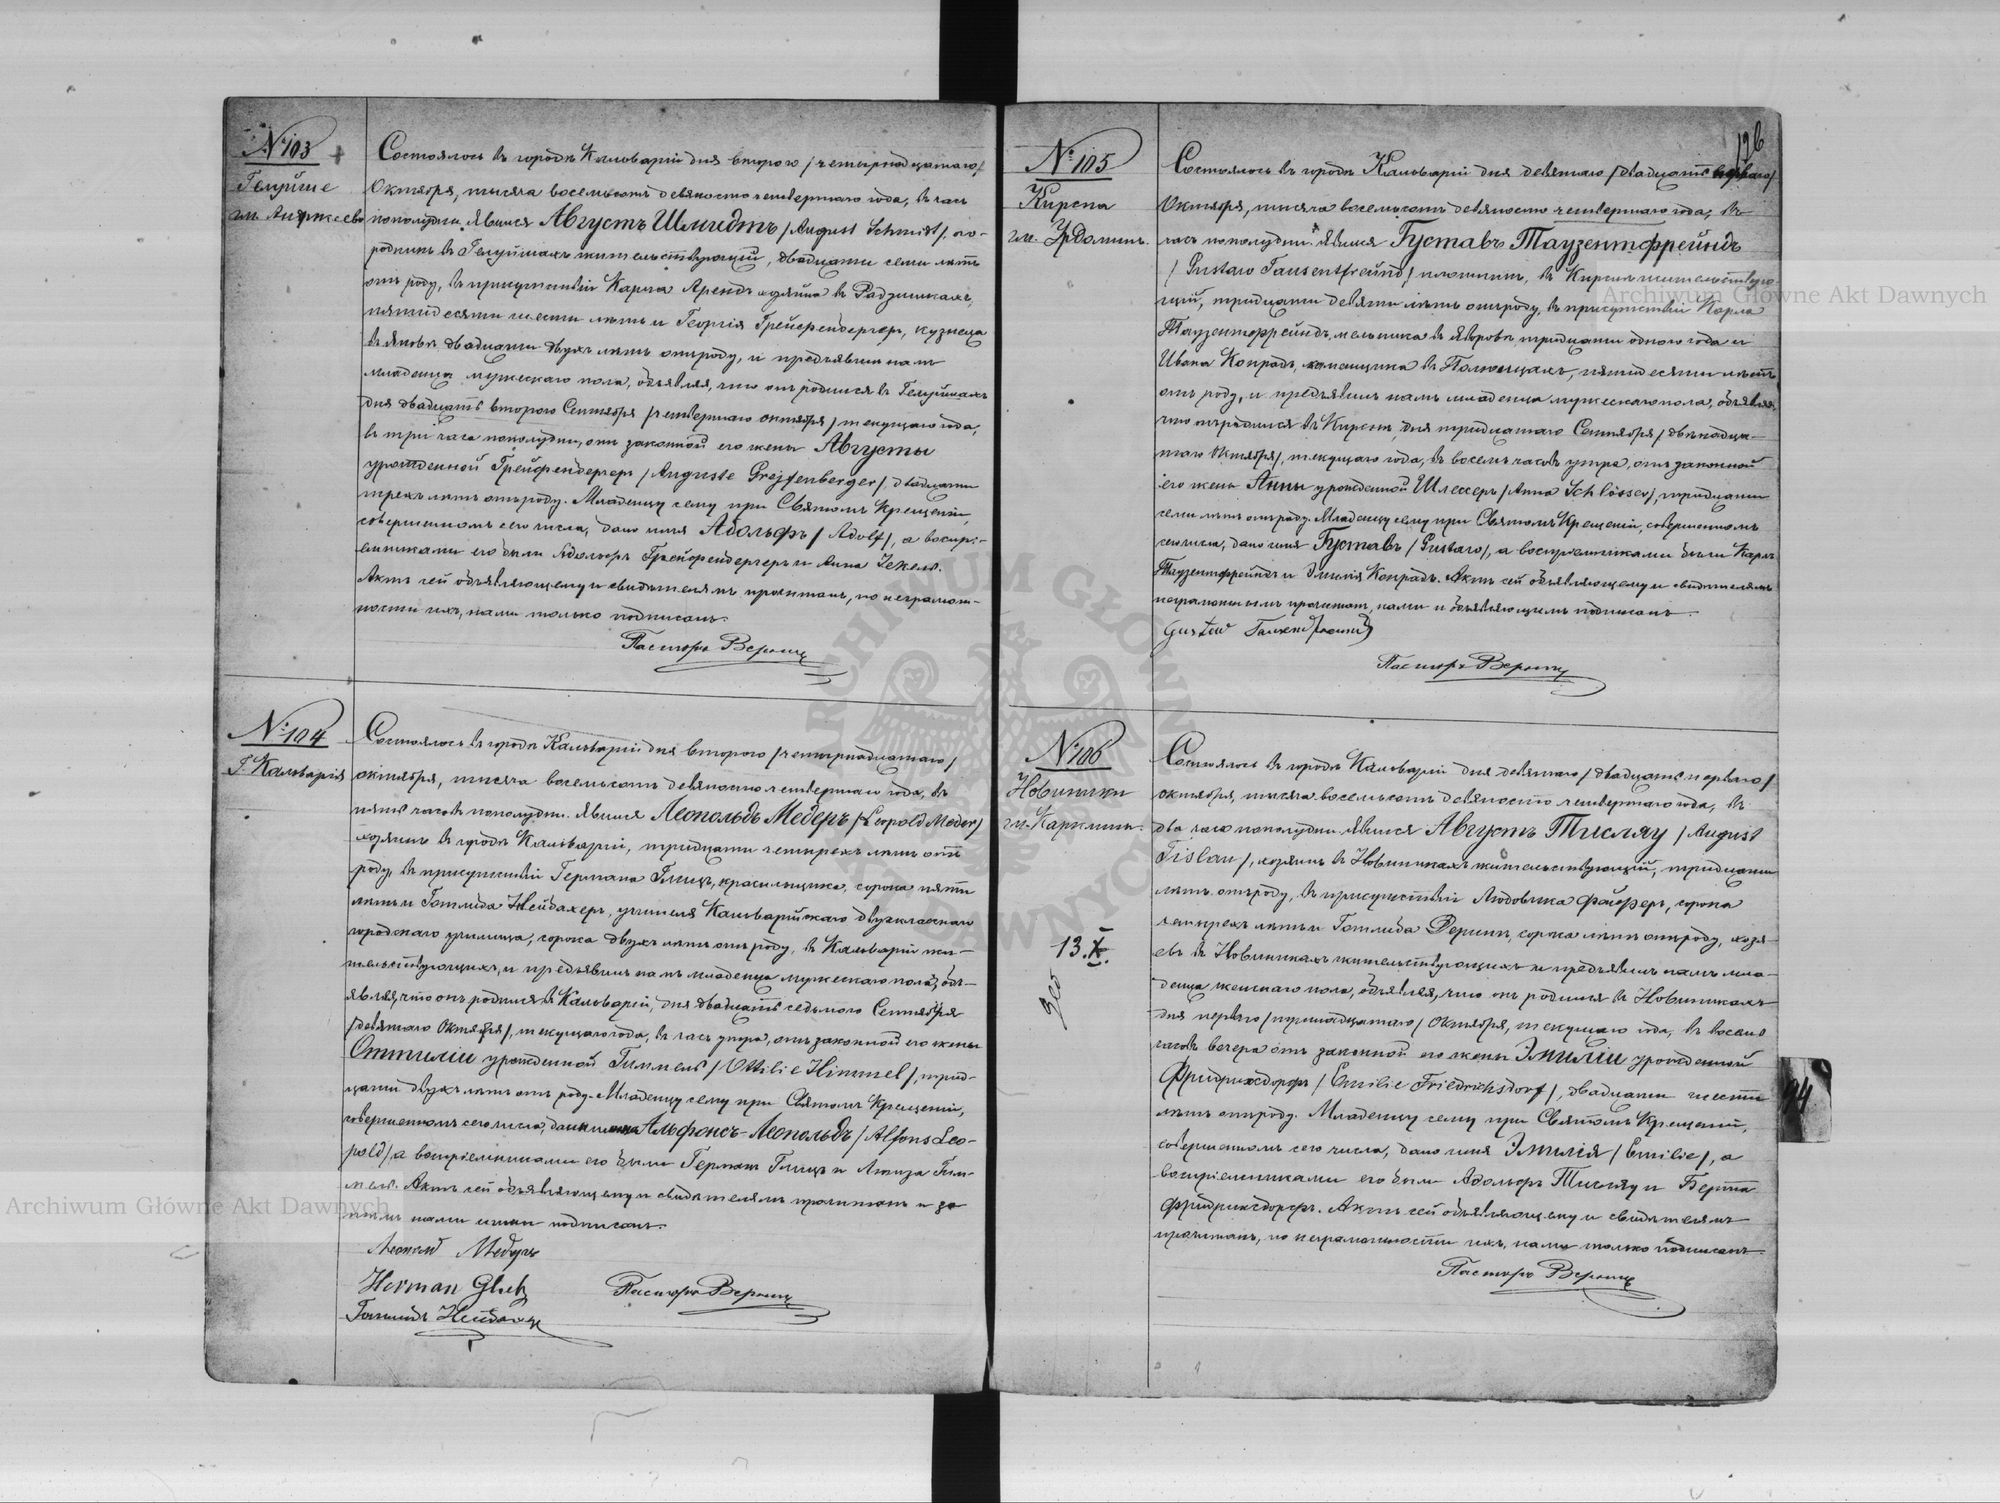 № 103
Гелуйше
гм. Анржеево
Состоялось въ городѣ Кальваріи дня второго /четырнадцатаго/
Октября, тысяча восемьсотъ девяносто четвертаго года, въ часъ
пополудни. Явился Августъ Шмидтъ /August Schmidt/, 
въ Гелуйшахъ жительствующій, двадцати семи лѣтъ
отъ роду, въ присутствіи Карла Арендъ хозяина въ Радзишкахъ,
пятидесяти шести лѣтъ и Георгія Грейфенбергеръ, кузнеца
двадцати двухъ лѣтъ отъ роду, и предъявилъ намъ
младенца мужескаго пола, объявляя, что онъ родился въ Гелуйшахъ
дня двадцать второго Сентября /четвертаго октября/ текущаго года,
въ три часа пополудни, отъ законной его жены Августы
урожденной Грейфенбергеръ /Auguste Grejfenberger/ двадцати
трехъ лѣтъ отъ роду. Младенцу сему при Святомъ Крещеніи,
совершенномъ сего числа, дано имя Адольфъ /Adolf/, а воспрі-
емниками его были Адольфъ Грейфенбергеръ и Анна Гекель.
Актъ сей объявляющему и свидѣтелямъ прочитанъ, по неграмот-
ности ихъ, нами только подписанъ.
Пасторъ
№ 104
Г. Кальварія
Состоялось въ городѣ Кальваріи дня второго /четырнадцатаго/
октября, тысяча восемьсотъ девяносто четвертаго года, въ
пять часовъ пополудни. Явился Леопольдъ Медеръ /Leopold Meder/
хозяинъ въ городѣ Кальваріи, тридцати четырехъ лѣтъ отъ
роду, въ присутствіи Германа Глицъ, красильщика, сорока пяти
лѣтъ и Готлида Нейбахеръ, учителя Кальварійскаго двухкласснаго
городскаго училища, сорока двухъ лѣтъ отъ роду, въ Кальваріи жи-
тельствующихъ, и предъявилъ намъ младенца мужескаго пола, объ-
являя, что онъ родился въ Кальваріи, дня двадцать седьмого Сентября
/девятаго Октября/, текущаго года, въ часъ утра, отъ законной его жены
Оттиліи урожденной Гиммель /Ottilie Himmel/, трид-
цати двухъ лѣтъ отъ роду. Младенцу сему при Святомъ Крещеніи,
совершенномъ сего числа, дано имя Альфонсъ-Леопольдъ /Alfons Leo-
pold/, а воспріемниками его были Германъ Глицъ и Луиза Гим-
мель. Актъ сей объявляющему и свидѣтелямъ прочитанъ и за
тѣмъ нами и ими подписанъ.
Леополдъ Медеръ
Herman Glitz
Пасторъ
Готлидъ Нейбахеръ
126
№ 105
Кирсна
гм. Урдоминъ.
Состоялось въ городѣ Кальваріи дня девятаго /двадцать перваго/
Октября, тысяча восемьсотъ девяносто четвертаго года, въ
часъ пополудни. Явился Густавъ Таузентфрейндъ
/Gustaw Tausentfreünd/ плотникъ, въ Кирснѣ жительствую-
щій, тридцати девяти лѣтъ отъ роду, въ присутствіи Карла
Таузентфрейндъ, мельника въ Яворовѣ, тридцати одного года и
Ивана Конрадъ, каменщика въ, пятидесяти лѣтъ
отъ роду, и предъявилъ намъ младенца мужескаго пола, объявляя,
что онъ родился въ Кирснѣ, дня тридцатаго Сентября /двѣнадца-
таго Октября/, текущаго года, въ восемь часовъ утра, отъ законной
его жены Анны урожденной Шлессеръ /Anna Schlösser/, тридцати
семи лѣтъ отъ роду. Младенцу сему при Святомъ Крещеніи, совершенномъ
сего числа, дано имя Густавъ /Gustaw/, а воспріемниками были Карлъ
Таузентфрейндъ и Эмилія Конрадъ. Актъ сей объявляющему и свидѣтелямъ
неграмотнымъ прочитанъ, нами и объявляющимъ подписанъ.
Gustaw
Пасторъ
№ 106
Новиники
гм. Карклины.
13. X.
Состоялось въ городѣ Кальваріи дня девятаго /двадцать перваго/
октября, тысяча восемьсотъ девяносто четвертаго года, въ
два часа пополудни. Явился Августъ Тислау /August
Tislau/, хозяинъ въ Новиникахъ жительствующій, тридцати
лѣтъ отъ роду, въ присутствіи Людовика Фейферъ, сорока
четырехъ лѣтъ и Готлида, сорока лѣтъ отъ роду, хозя-
евъ въ Новиникахъ жительствующихъ и предъявилъ намъ мла-
денца женскаго пола, объявляя, что онъ родился въ Новиникахъ
дня перваго /тринадцатаго/ Октября, текущаго года, въ восемь
часовъ вечера отъ законной его жены Эмиліи урожденной
Фридрихсдорфъ /Emilie Friedrichsdorf/, двадцати шести
лѣтъ отъ роду. Младенцу сему при Святомъ Крещеніи,
совершенномъ сего числа, дано имя Эмилія /Emilie/, а
воспріемниками его были Адольфъ Тислау и Берта
Фридрихсдорфъ. Актъ сей объявляющему и свидѣтелямъ
прочитанъ, по неграмотности ихъ, нами только подписанъ
Пасторъ
94
Archiwum Główne Akt Dawnych
Archiwum Główne Akt Dawnych
ARCHIWUM GŁÓWNE AKT DAWNYCH